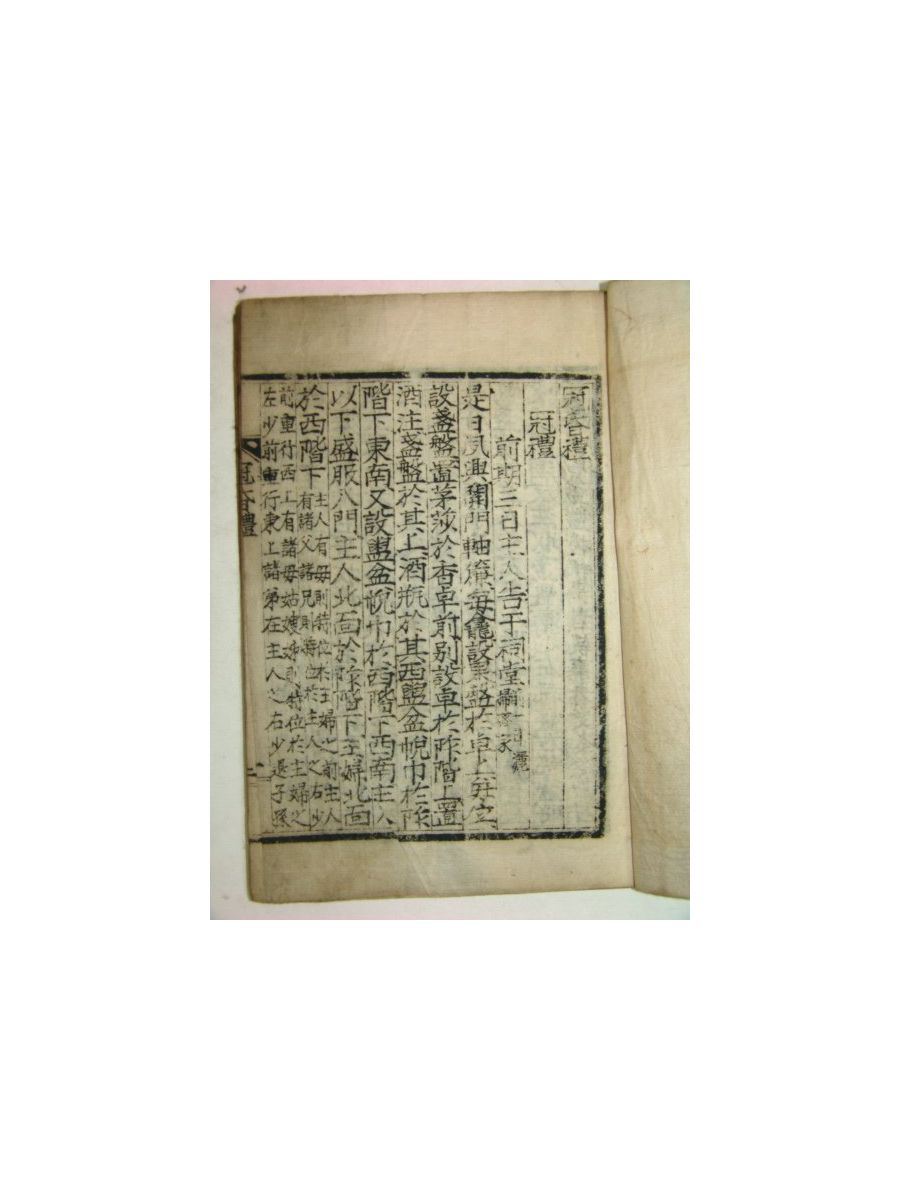 冠昏禮
冠禮
前期三日主人告于祠堂
是日夙興開門軸簾每龕設果盤於卓上
設盞盤置茅莎於香卓前別設卓於阼階上置
酒注盞盤於其上酒瓶於其西盥盆帨巾於阼
階下東南又設盥盆帨巾於西階下西南主人
以下盛服入門主人北面於阼階下主婦北面
於西階下
主人有母則特位於主婦之前主人
有諸父諸兄則特位於主人之右少
前重行西上有諸母姑嫂姊則特位於主婦之
左少前重行東上諸弟在主人之右少退子孫
冠昏禮